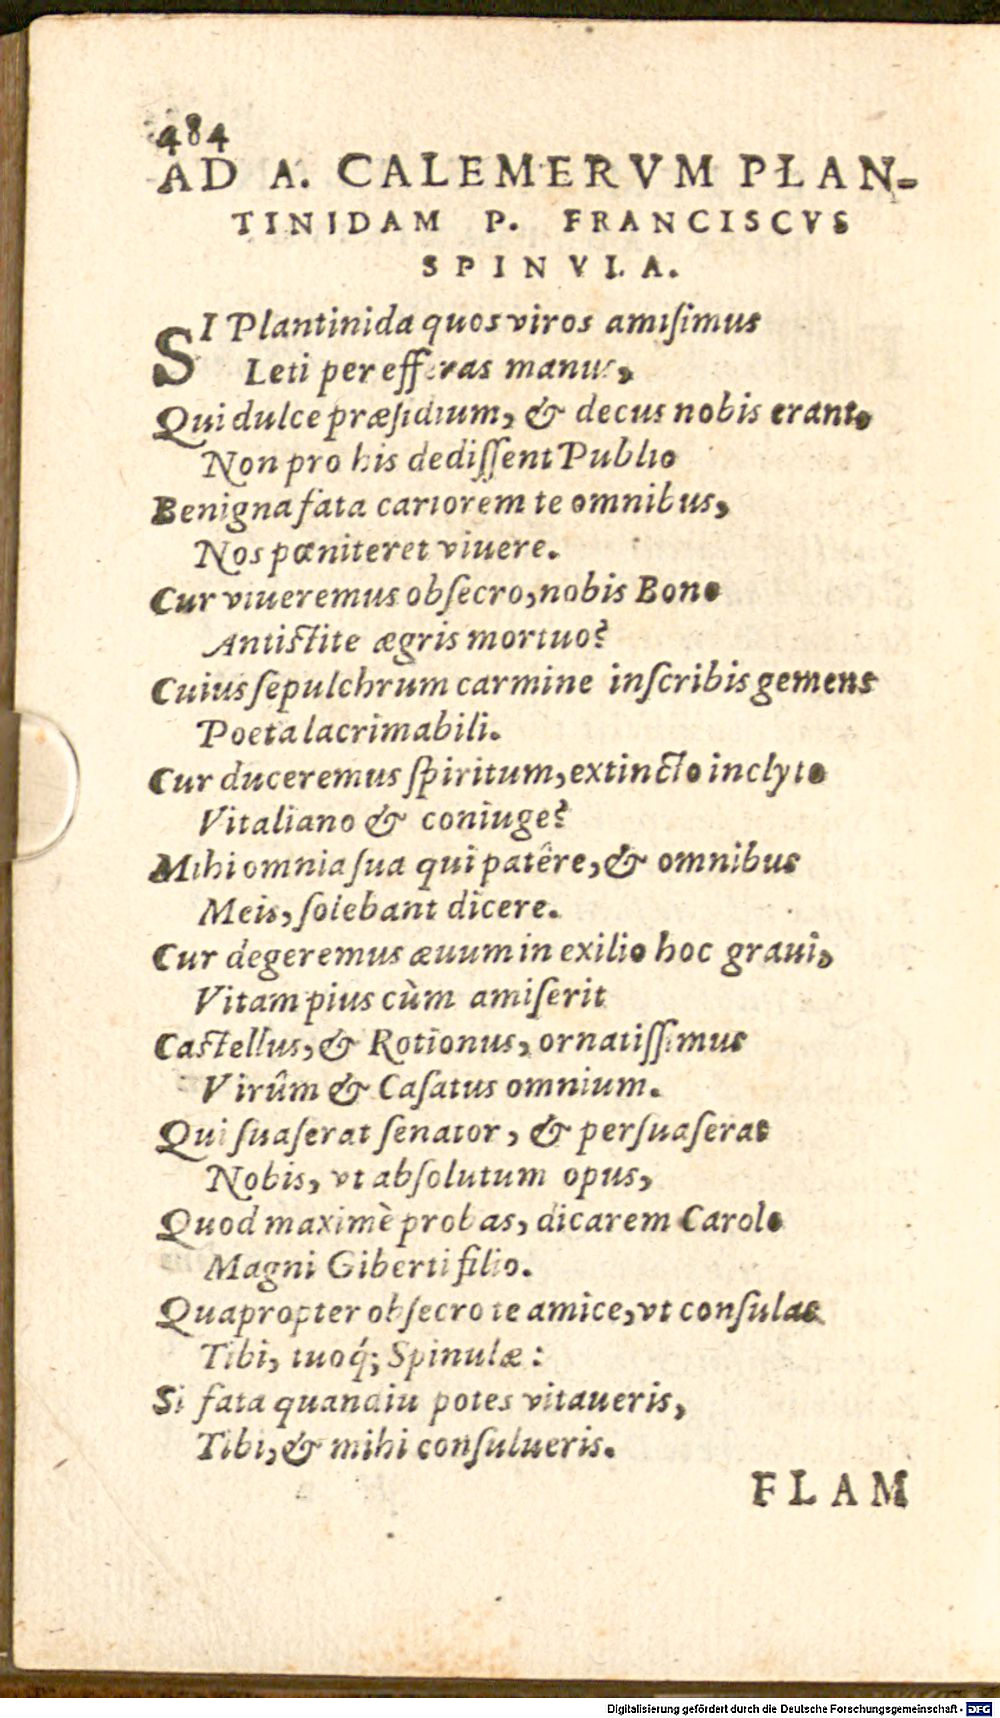 484
AD A. CALEMERVM PLAN-
TINIDAM P. FRANCISCVS
SPINVLA.
SI Plantinida quos viros amiſimus
Leti per efferas manus,
Qui dulce præſidium, & decus nobis erant.
Non pro his dediſſent Publio
Benigna fata cariorem te omnibus,
Nos pœniteret viuere.
Cur viueremus obſecro, nobis Bono
Antiſtite ægris mortuo?
Cuius ſepulchrum carmine inſcribis gemens
Poeta lacrimabili.
Cur duceremus ſpiritum, extincto inclyto
Vitaliano & coniuge?
Mihi omnia ſua qui patêre, & omnibus
Meis, ſolebant dicere.
Cur degeremus æuum in exilio hoc graui,
Vitam pius cùm amiſerit
Caſtellus, & Rotionus, ornatiſſimus
Virûm & Caſatus omnium.
Qui ſuaſerat ſenator, & perſuaſerat
Nobis, vt abſolutum opus,
Quod maximè probas, dicarem Carolo
Magni Giberti filio.
Quapropter obſecro te amice, vt conſulas
Tibi, tuoq́; Spinulæ:
Si fata quandiu potes vitaueris,
Tibi, & mihi conſulueris.
FLAM
Digitalisierung gefördert durch die Deutsche Forschungsgemeinschaft - DFG